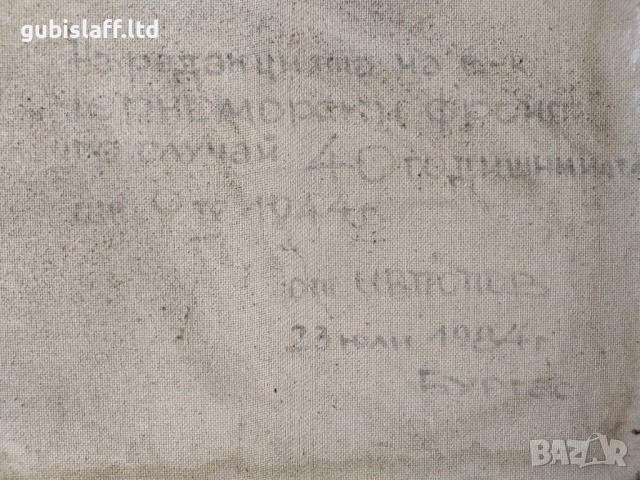 gubislaff.ltd
На редакцията на в-к
Черноморски фронт
по случай 40 годишнината
от
23 юли 1984 г
Бургас
BAZAR